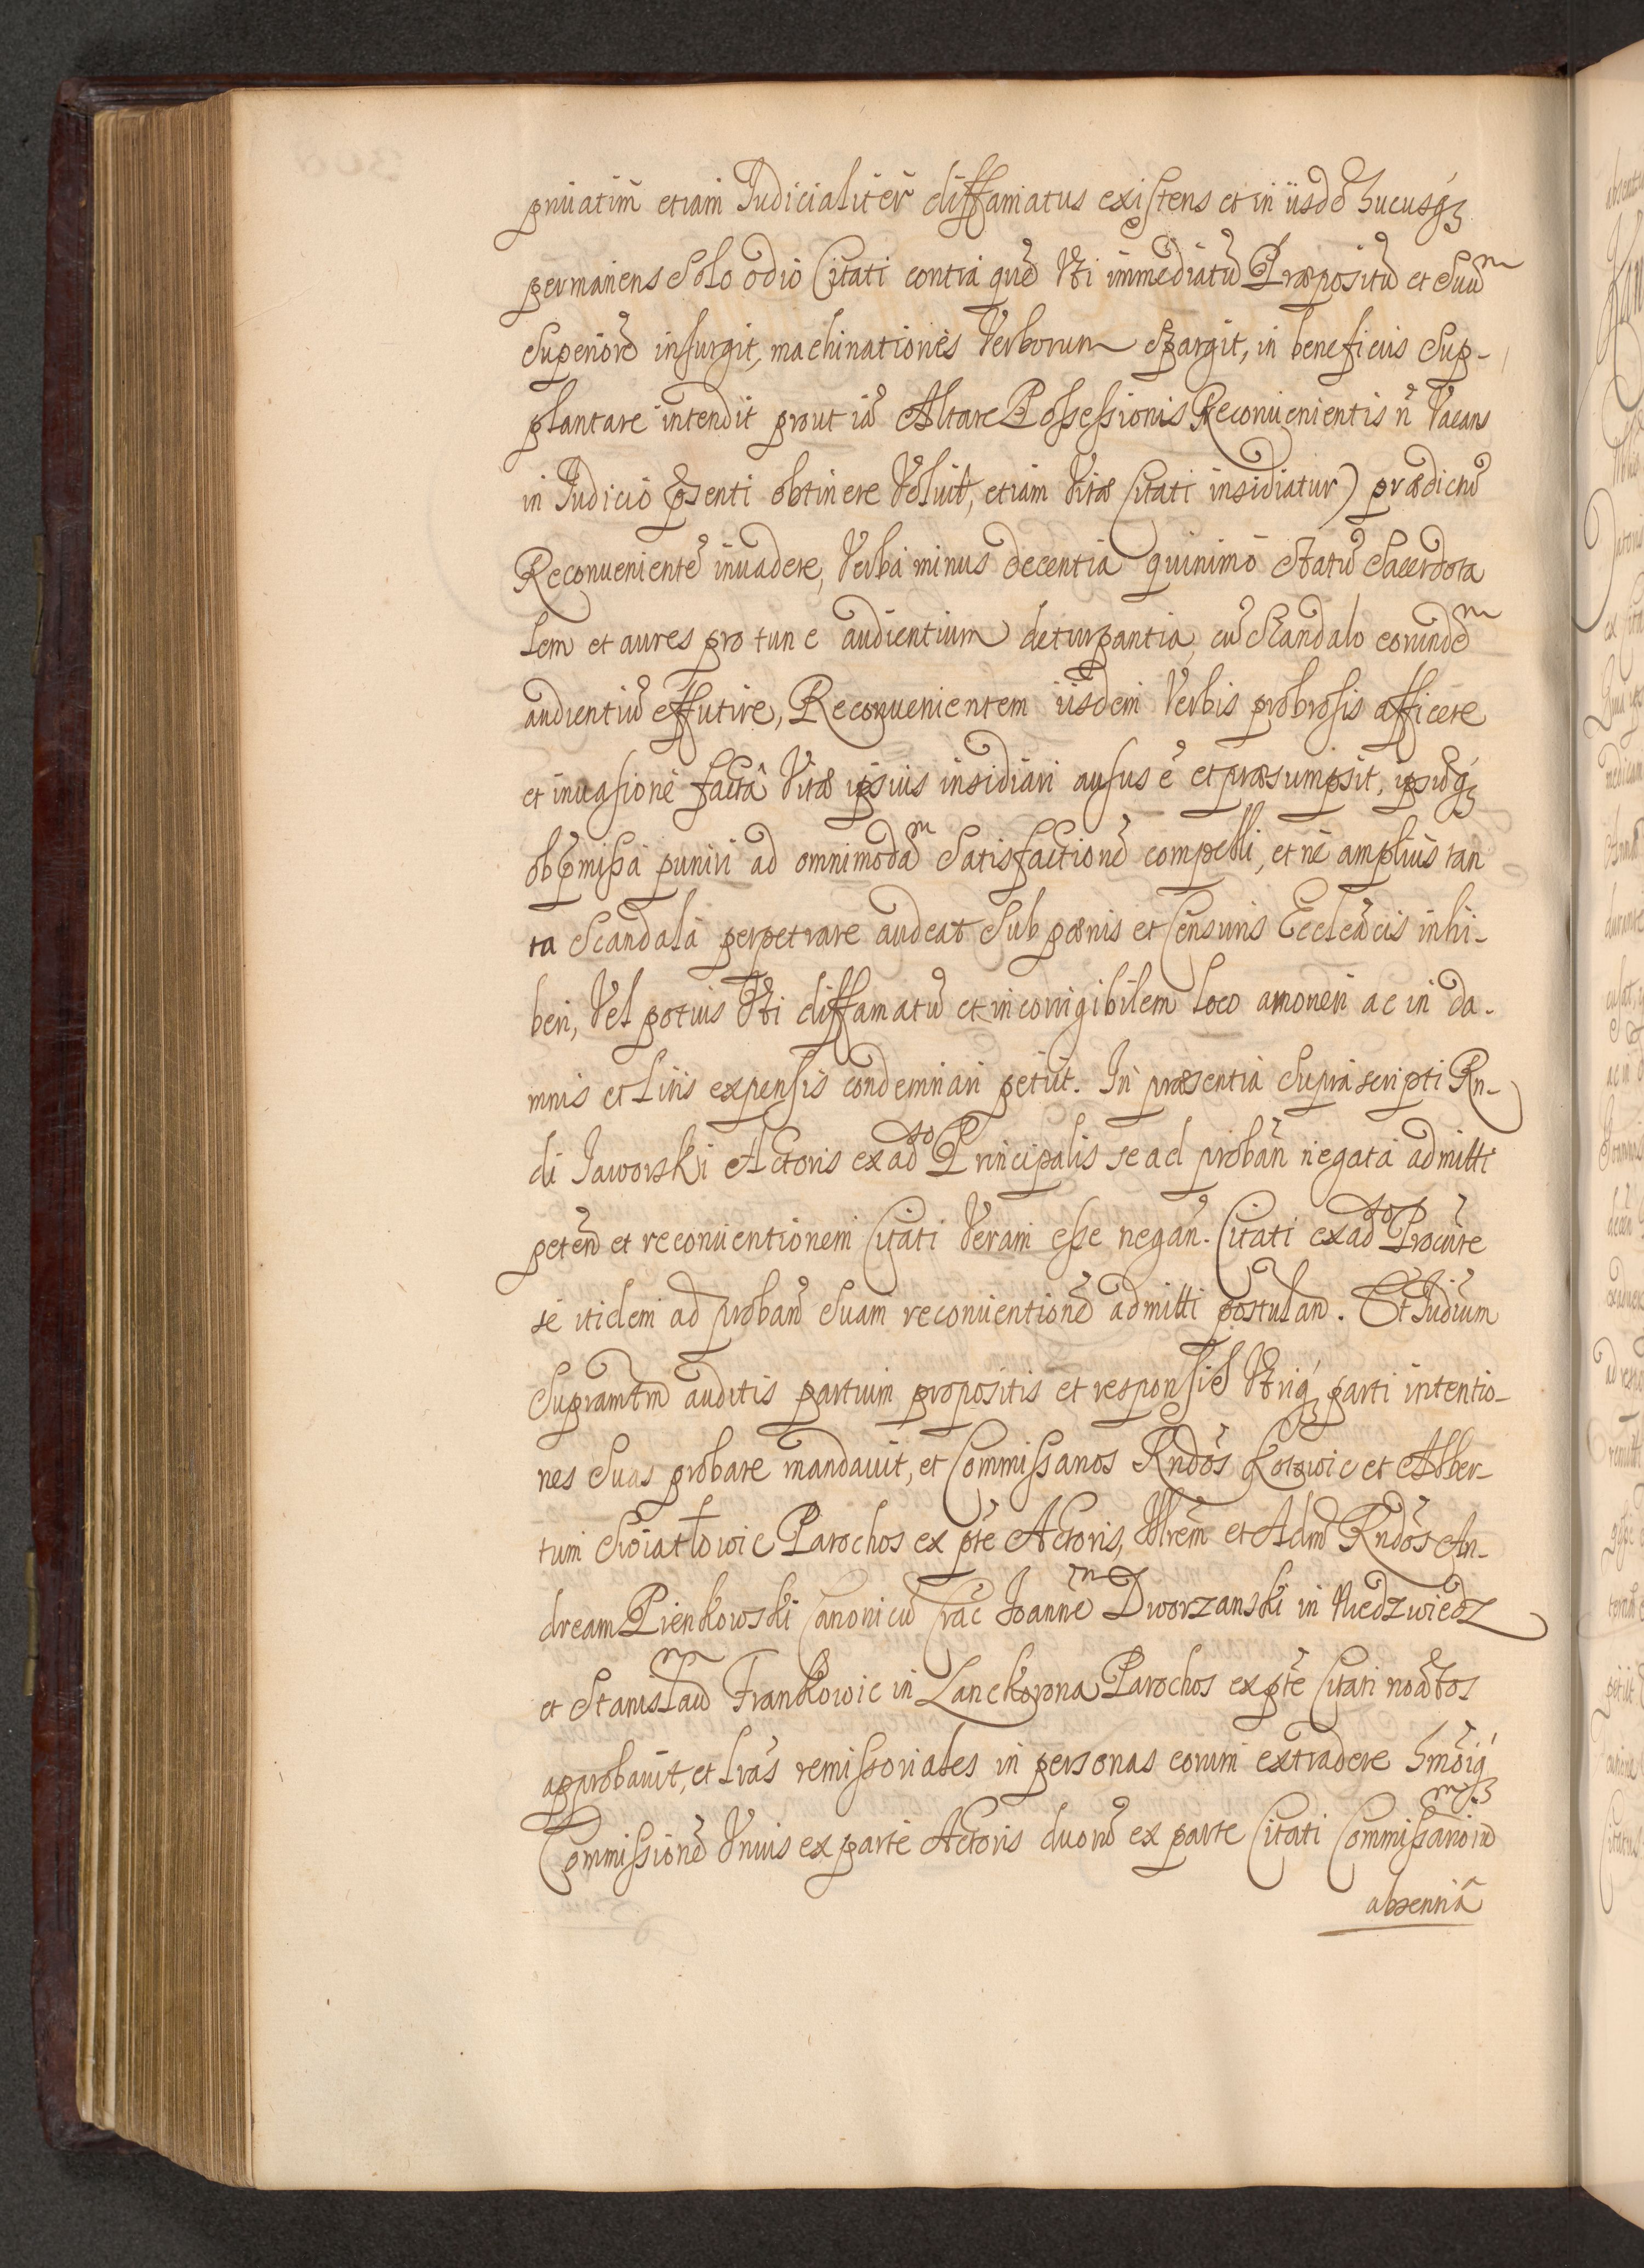 priuatim etiam Iudicialiter diffamatus existens et in iisdē hucusq́ꝫ
permanens Solo odio Citati contra quē Uti immediatū Præpositū et Suūm
Superiorē insurgit, machinationes Verborum Spargit, in beneficiis Sup-
plantare intendit prout iā Altare Possessionis Reconuenientis ñ Vacans
in Iudicio p̄senti obtinere Voluit, etiam Vitæ Citati insidiatur) prædictū
Reconuenientē inuadere, Verba minus decentia quinimo Statū Sacerdota
lem et aures pro tunc audientium deturpantia, cū Scandalo eorundēm
audientiū effutire, Reconuenientem iisdem Verbis probrosis afficere
et inuasione factâ Vitæ ipsius insidiari ausus ē et præsumpsit, ipsūq́ꝫ
ob p̄missa puniri ad omnimodām Satisfactionē compelli, et ne amplius tan
ta Scandala perpetrare audeat Sub pœnis et Censuris Ecclēācis inhi-
beri, Vel potius Uti diffamatū et incorrigibilem loco amoneri ac in da-
mnis et litis expensis condemnari petiit. In præsentia Suprascripti Rn-
di Jaworski Actoris ex adso Principalis se ad probañ negata admitti
petēn et reconuentionem Citati Veram esse negañ. Citati ex adso Procūre
se itidem ad probañ Suam reconuentionē admitti postulan. Et Iudiūm
Supramtm̄ auditis partium propositis et responsis Utriq́ꝫ parti intentio-
nes Suas probare mandauit, et Commissarios Rndōs Kotowic et Alber-
tum Swiatłowic Parochos ex pte Actoris, Illrēm et Admō Rndōs An-
dream Pienkowski Canonicū Crac Joannēm Dworzanski in Niedzwiedz
et Stanislaūm Frankowic in Lanckorona Parochos ex pte Citati noātos
approbauit, et lras remissoriales in personas eorum extradere hmōiq́ꝫ
Commissionē Vnius ex parte Actoris duorū ex parte Citati Commissarioꝝm
absentiâ